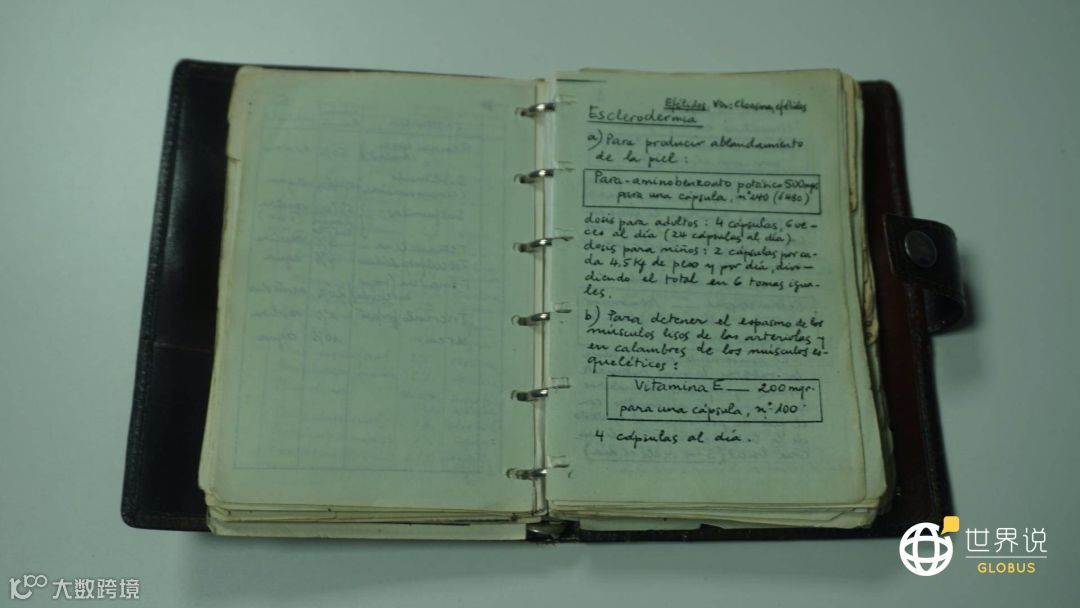 Efélides. Vea: Cloasma, efélides
Esclerodermia
a) Para producir ablandamiento
de la piel:
Para-aminobenzoato potásico 500 mgr.
para una cápsula, nº 240 (ó 480)
dosis para adultos: 4 cápsulas, 6 ve-
ces al día (24 cápsulas al día)
dosis para niños: 2 cápsulas por ca-
da 4,5 Kg de peso y por día, divi-
diendo el total en 6 tomas igua-
les.
b) Para detener el espasmo de los
músculos lisos de las arteriolas y
en calambres de los músculos es-
queléticos:
Vitamina E — 200 mgr.
para una cápsula, nº 100
4 cápsulas al día.
世界说
GLOBUS
大数跨境